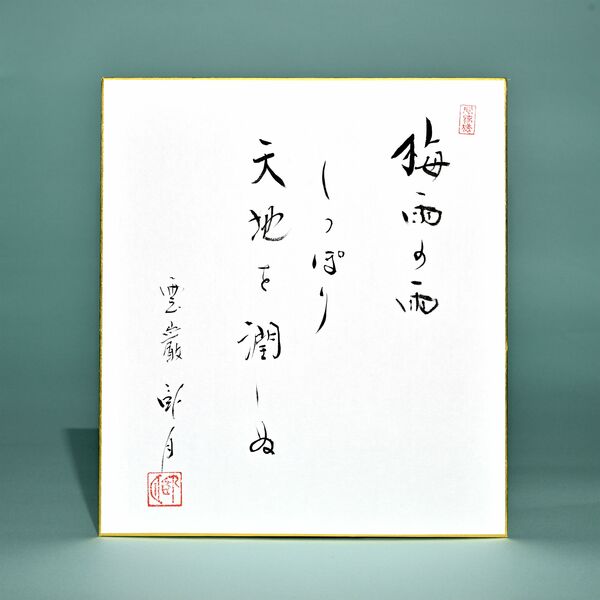 梅雨の雨
しっぽり
天地を潤しぬ
雲巌
月